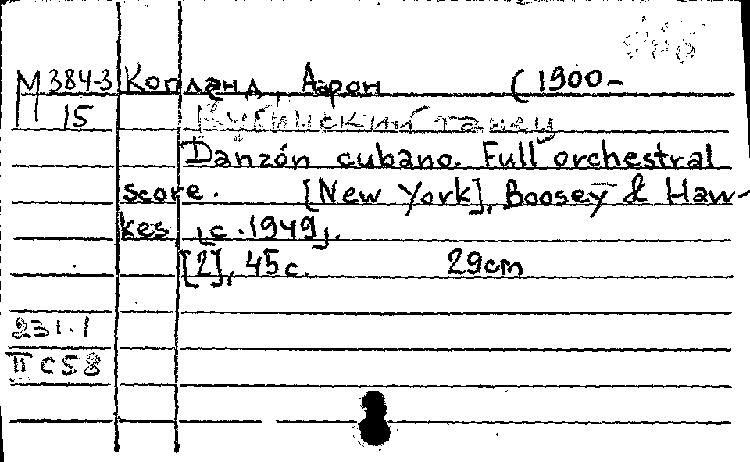 М 384-3 Копланд, Аарон (1900-
15 Кубинский танец
Danzón cubano. Full orchestral
score. [New York], Boosey & Haw-
kes, c.1949,.
[2], 45 c. 29cm
231.1
II C58